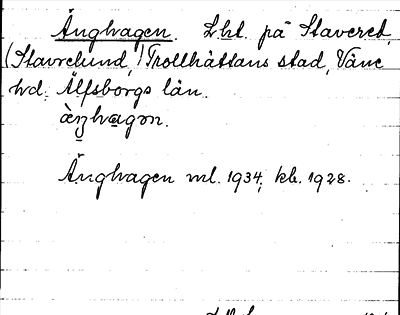 Änghagen. Lht. på Staveret,
(Stavrelund,) Trollhättans stad, Väne
hd. Älfsborgs län.
àŋhagən.
Änghagen ml. 1934, kb. 1928.